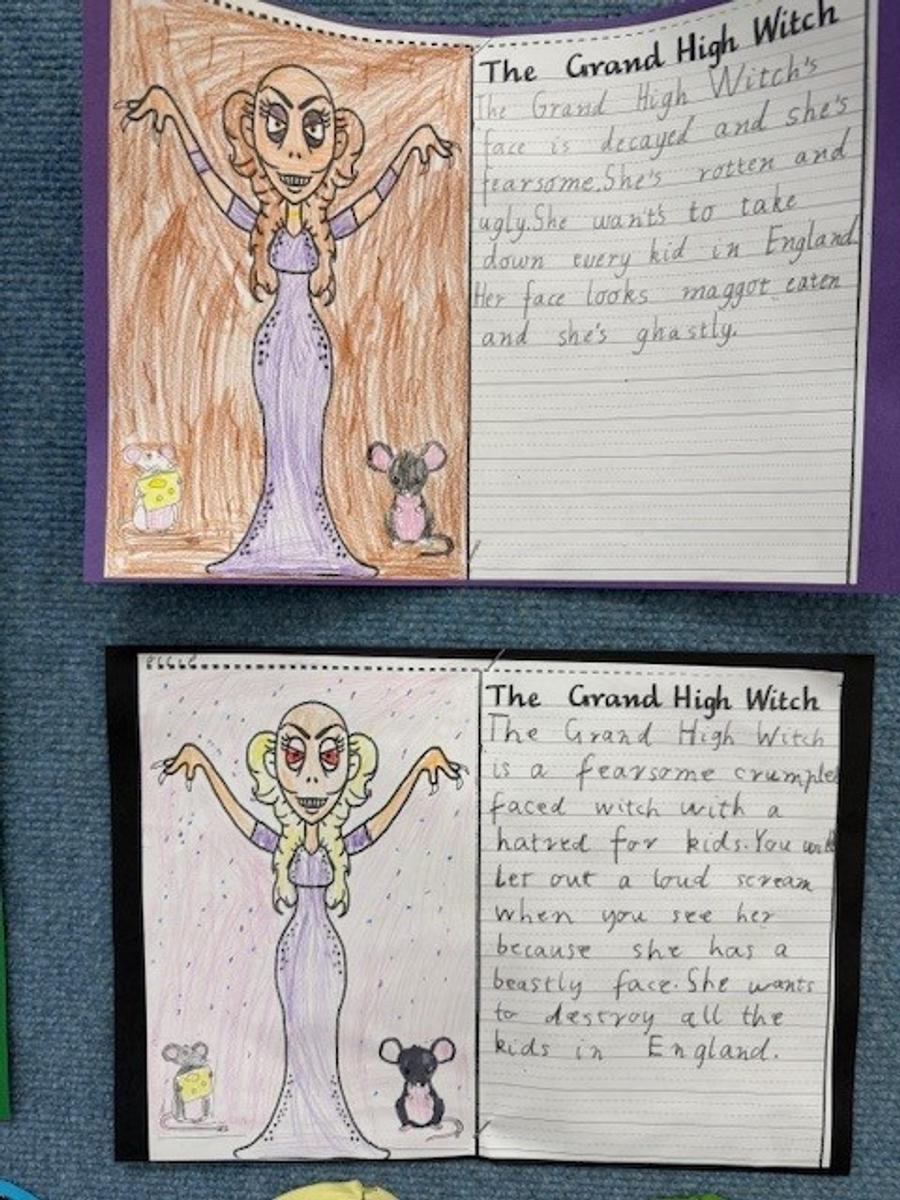 The Grand High Witch
The Grand High Witch's
face is decayed and she's
fearsome.She's rotten and
ugly.She want's to take
down every kid in England.
Her face looks maggot eaten
and she's ghastly.
The Grand High Witch
The Grand High Witch
is a fearsome crumple
faced witch with a
hatred for kids.You will
Let out a loud scream
when you see her
because she has a
beastly face.She wants
to destroy all the
kids in England.